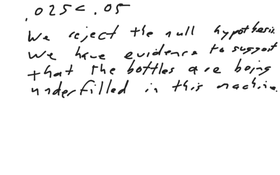 .025 < .05
We reject the null hypothesis
We have evidence to suggest
that the bottles are being
underfilled in this machine.